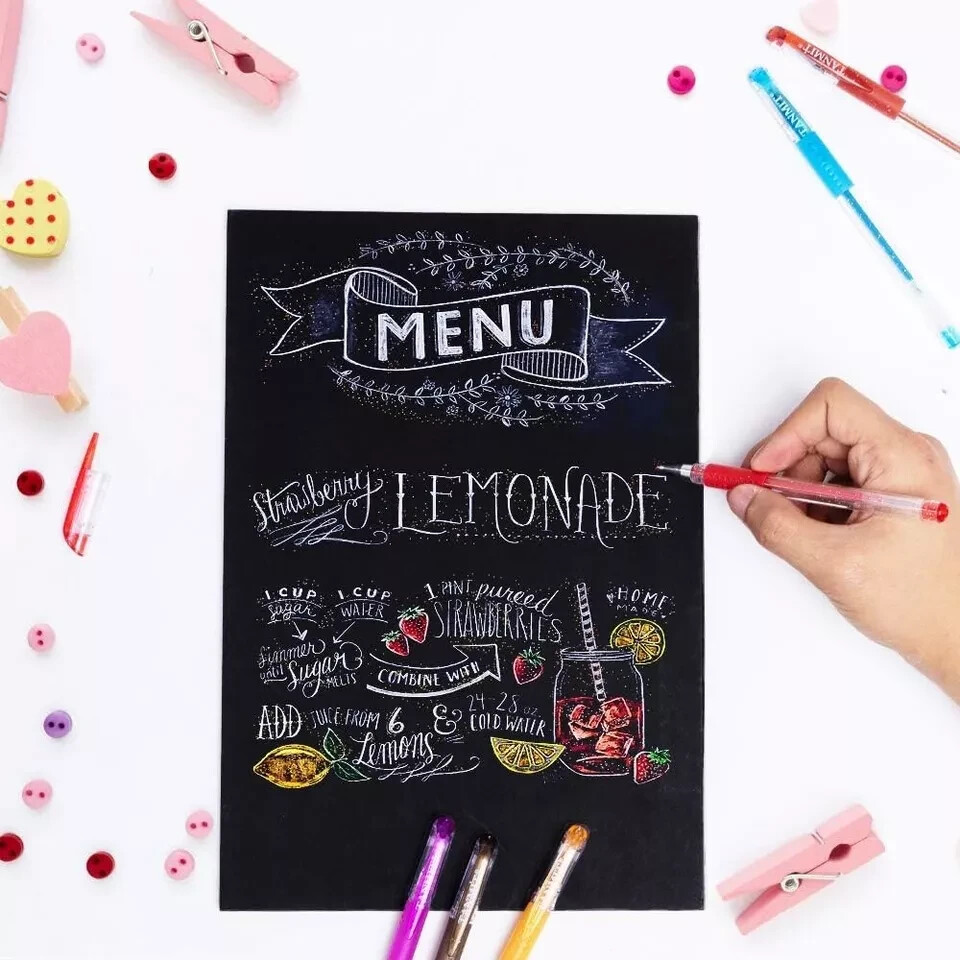 TANMIT
TANMIT
MENU
Strawberry LEMONADE
1 CUP sugar 1 CUP WATER 1 PINT pureed STRAWBERRIES HOME MADE
Simmer until Sugar MELTS COMBINE WITH
ADD JUICE FROM 6 Lemons & 24-28 oz COLD WATER